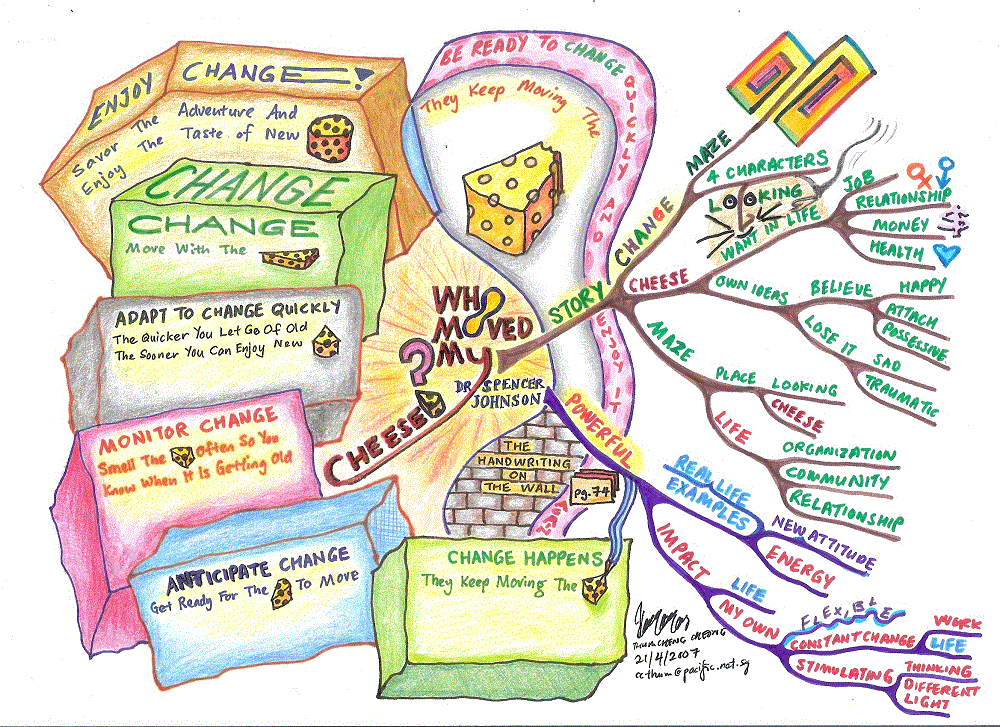 WHO
MOVED
MY
?
CHEESE
DR SPENCER
JOHNSON
BE READY TO CHANGE QUICKLY AND ENJOY IT
They Keep Moving The
ENJOY CHANGE!
Savor The Adventure And
Enjoy The Taste of New
CHANGE
CHANGE
Move With The
ADAPT TO CHANGE QUICKLY
The Quicker You Let Go Of Old
The Sooner You Can Enjoy New
MONITOR CHANGE
Smell The Often So You
Know When It Is Getting Old
ANTICIPATE CHANGE
Get Ready For The To Move
CHANGE HAPPENS
They Keep Moving The
THE
HANDWRITING
ON
THE WALL
Pg.74
STORY
CHANGE
MAZE
4 CHARACTERS
CHEESE
LOOKING
WANT IN LIFE
JOB
RELATIONSHIP
MONEY
HEALTH
OWN IDEAS
BELIEVE
HAPPY
ATTACH
POSSESSIVE
LOSE IT
SAD
TRAUMATIC
MAZE
PLACE
LOOKING
CHEESE
LIFE
ORGANIZATION
COMMUNITY
RELATIONSHIP
POWERFUL
REAL LIFE
EXAMPLES
NEW ATTITUDE
ENERGY
IMPACT
LIFE
MY OWN
FLEXIBLE
CONSTANT CHANGE
WORK
LIFE
STIMULATING
THINKING
DIFFERENT
LIGHT
THUM CHENG CHEONG
21/4/2007
ccthum@pacific.net.sg